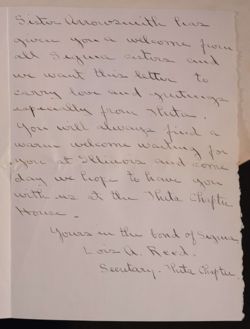 Sister Arrowsmith has
given you a welcome from
all Sigma sisters and
we want this letter to
carry love and greetings
especially from Theta.
You will always find a
warm welcome waiting for
you at Illinois and some
day we hope to have you
with us at the Theta Chapter
House.
Yours in the bond of Sigma,
Lois A. Reed.
Secretary. Theta Chapter